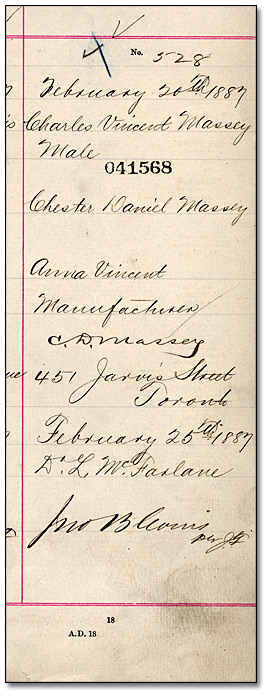 No. 528
February 20th 1887
Charles Vincent Massey
Male
041568
Chester Daniel Massey
Anna Vincent
Manufacturer
C. D. Massey
451 Jarvis Street
Toronto
February 25th 1887
Dr. L McFarlane
Jno Blevins
per
18
A.D. 18